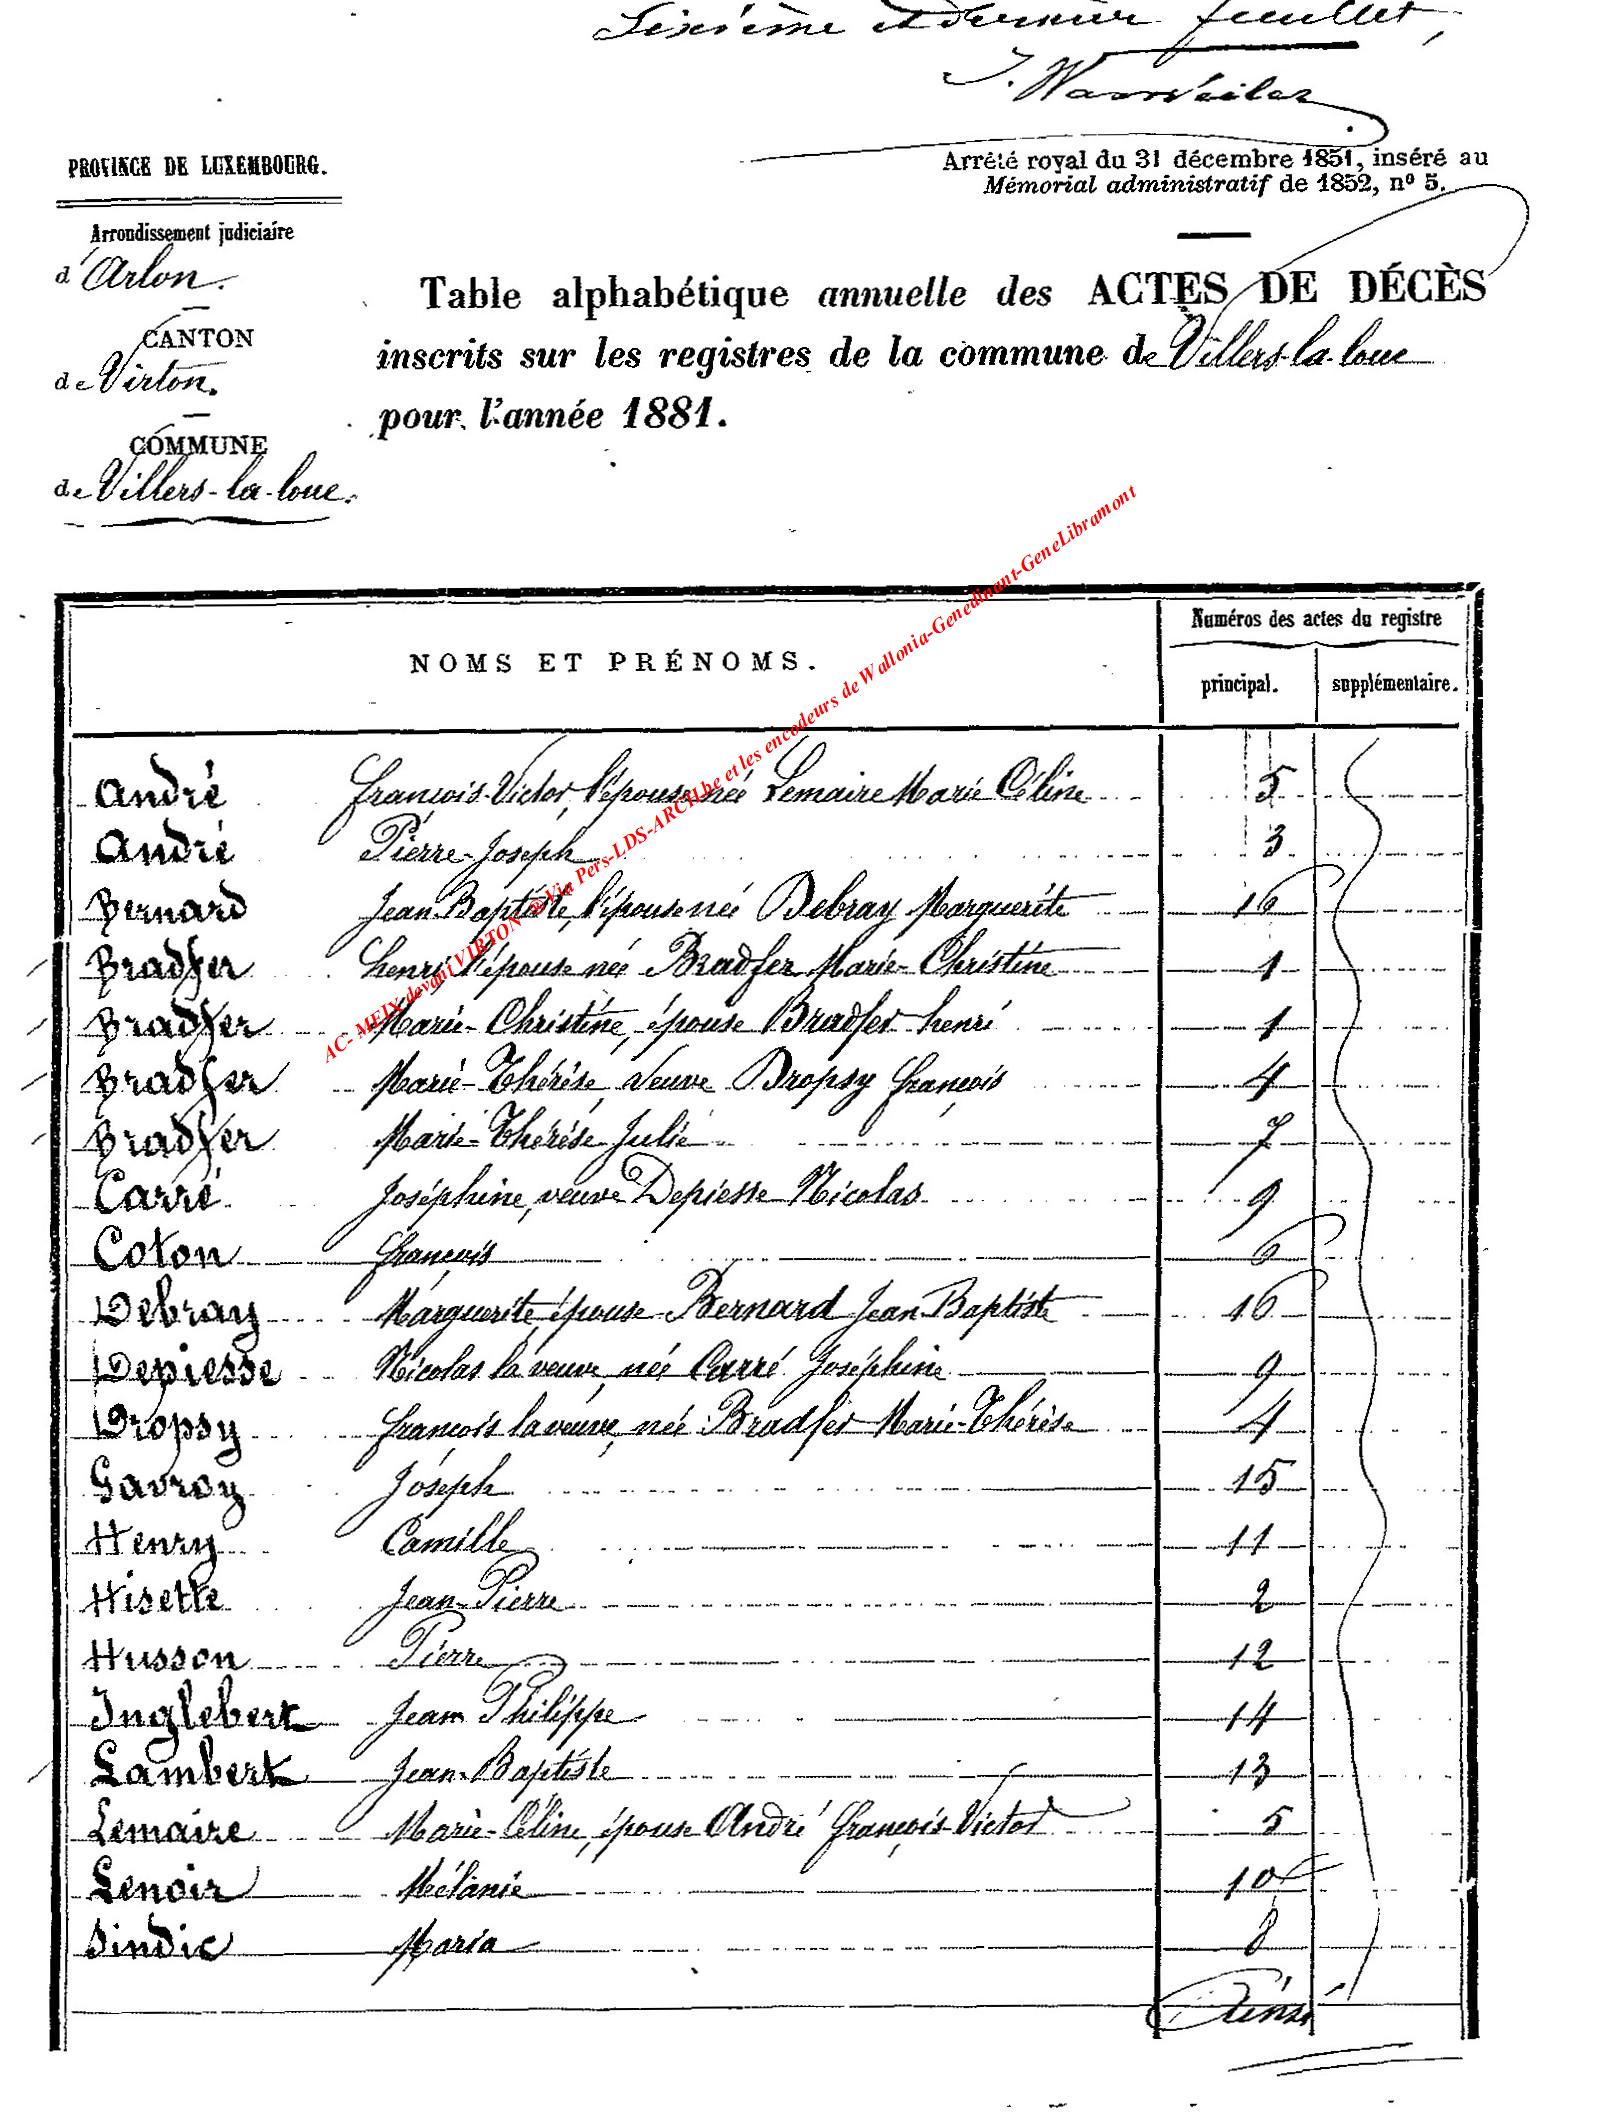 Sixième et dernier feuillet,
J. Wanweiler
PROVINCE DE LUXEMBOURG.
Arrêté royal du 31 décembre 1851, inséré au
Mémorial administratif de 1852, nº 5.
Arrondissement judiciaire
d'Arlon.
CANTON
de Virton.
COMMUNE
de Villers-la-loue.
Table alphabétique annuelle des ACTES DE DÉCÈS
inscrits sur les registres de la commune de Villers-la-loue
pour l'année 1881.
AC- MEIX devant VIRTON @ Via Pers-LDS-ARCH.be et les encodeurs de Wallonia-Genedinant-GeneLibramont
NOMS ET PRÉNOMS. Numéros des actes du registre
principal. supplémentaire.
André François-Victor, l'épouse née Lemaire Marie Céline 5
André Pierre-Joseph 3
Bernard Jean-Baptiste, l'épouse née Debray Marguerite 16
Bradfer henri l'épouse née Bradfer Marie-Christine 1
Bradfer Marie-Christine, épouse Bradfer henri 1
Bradfer Marie-Thérèse, veuve Dropsy François 4
Bradfer Marie-Thérèse Julie 7
Carré Joséphine, veuve Depiesse Nicolas 9
Coton François 6
Debray Marguerite, épouse Bernard Jean Baptiste 16
Depiesse Nicolas la veuve, née Carré Joséphine 9
Dropsy François la veuve, née Bradfer Marie-Thérèse 4
Gavroy Joseph 15
Henry Camille 11
Hisette Jean-Pierre 2
Husson Pierre 12
Inglebert Jean Philippe 14
Lambert Jean-Baptiste 13
Lemaire Marie-Céline, épouse André François-Victor 5
Lenoir Mélanie 10
Sindic Maria 8